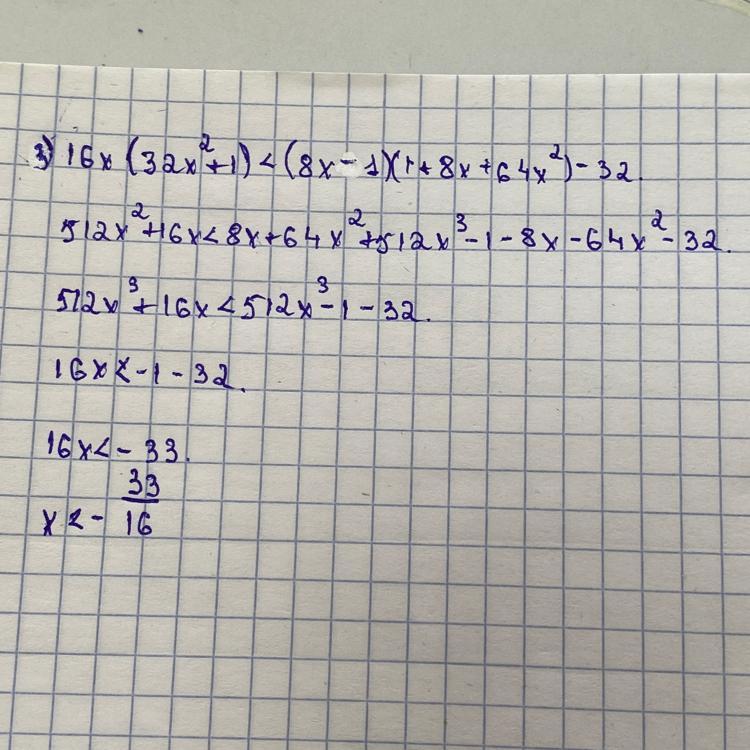 3) 16x(32x²+1)<(8x-1)(1+8x+64x²)-32.
512x²+16x<8x+64x²+512x³-1-8x-64x²-32.
512x³+16x<512x³-1-32.
16x<-1-32.
16x<-33.
x<-33/16